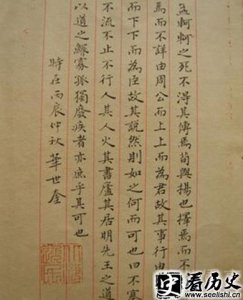 孟軻軻之死不得其傳焉荀與揚也擇焉而不
焉而不詳由周公而上上而為君故其事行由
而下下而為臣故其說長然則如之何而可也曰不塞
不流不止不行人其人火其書廬其居明先王之道
以道之鰥寡孤獨廢疾者亦庶乎其可也
時在丙辰仲秋華世奎
看历史
www.seelishi.cn